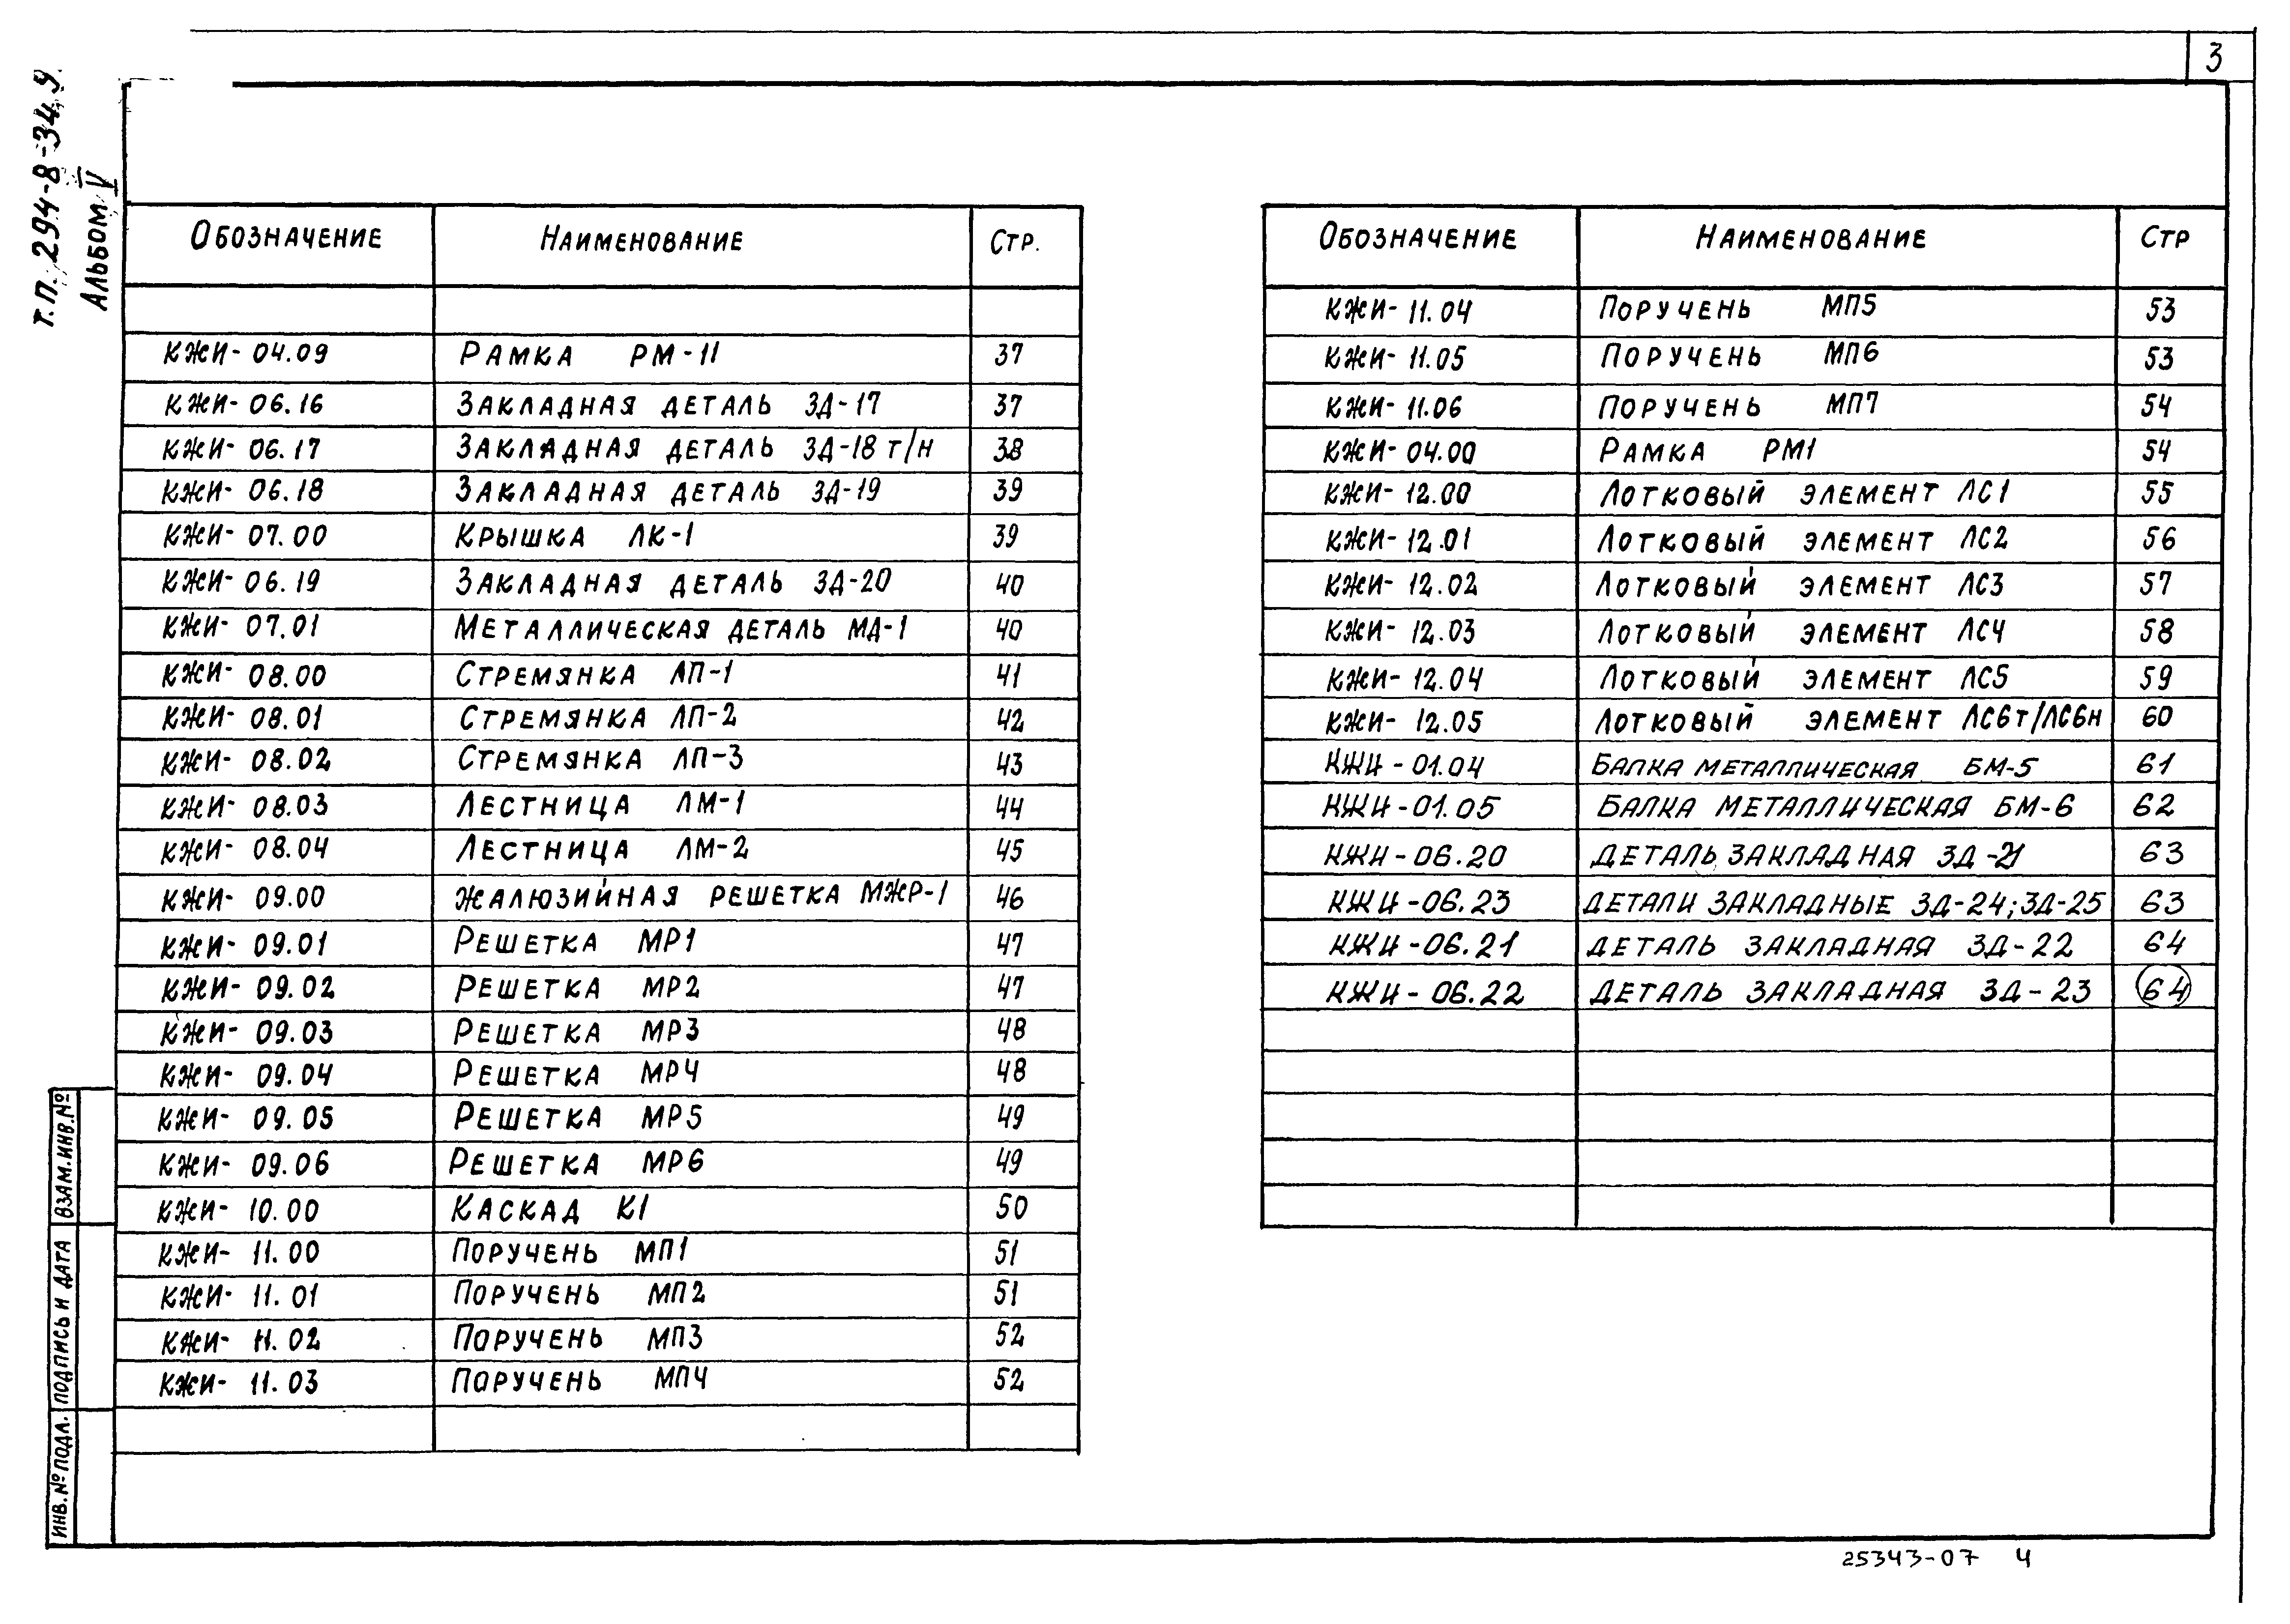 3
т.п. 294-8-34.9
Альбом V
Обозначение Наименование Стр.
КЖИ-04.09 Рамка РМ-11 37
КЖИ-06.16 Закладная деталь ЗД-17 37
КЖИ-06.17 Закладная деталь ЗД-18 т/н 38
КЖИ-06.18 Закладная деталь ЗД-19 39
КЖИ-07.00 Крышка ЛК-1 39
КЖИ-06.19 Закладная деталь ЗД-20 40
КЖИ-07.01 Металлическая деталь МД-1 40
КЖИ-08.00 Стремянка ЛП-1 41
КЖИ-08.01 Стремянка ЛП-2 42
КЖИ-08.02 Стремянка ЛП-3 43
КЖИ-08.03 Лестница ЛМ-1 44
КЖИ-08.04 Лестница ЛМ-2 45
КЖИ-09.00 Жалюзийная решетка МЖР-1 46
КЖИ-09.01 Решетка МР1 47
КЖИ-09.02 Решетка МР2 47
КЖИ-09.03 Решетка МР3 48
КЖИ-09.04 Решетка МР4 48
КЖИ-09.05 Решетка МР5 49
КЖИ-09.06 Решетка МР6 49
КЖИ-10.00 Каскад К1 50
КЖИ-11.00 Поручень МП1 51
КЖИ-11.01 Поручень МП2 51
КЖИ-11.02 Поручень МП3 52
КЖИ-11.03 Поручень МП4 52
Обозначение Наименование Стр
КЖИ-11.04 Поручень МП5 53
КЖИ-11.05 Поручень МП6 53
КЖИ-11.06 Поручень МП7 54
КЖИ-04.00 Рамка РМ1 54
КЖИ-12.00 Лотковый элемент ЛС1 55
КЖИ-12.01 Лотковый элемент ЛС2 56
КЖИ-12.02 Лотковый элемент ЛС3 57
КЖИ-12.03 Лотковый элемент ЛС4 58
КЖИ-12.04 Лотковый элемент ЛС5 59
КЖИ-12.05 Лотковый элемент ЛС6т/ЛС6н 60
КЖИ-01.04 Балка металлическая БМ-5 61
КЖИ-01.05 Балка металлическая БМ-6 62
КЖИ-06.20 Деталь закладная ЗД-21 63
КЖИ-06.23 Детали закладные ЗД-24; ЗД-25 63
КЖИ-06.21 Деталь закладная ЗД-22 64
КЖИ-06.22 Деталь закладная ЗД-23 64
Взам. инв. №
Подпись и дата
Инв. № подл.
25343-07 4